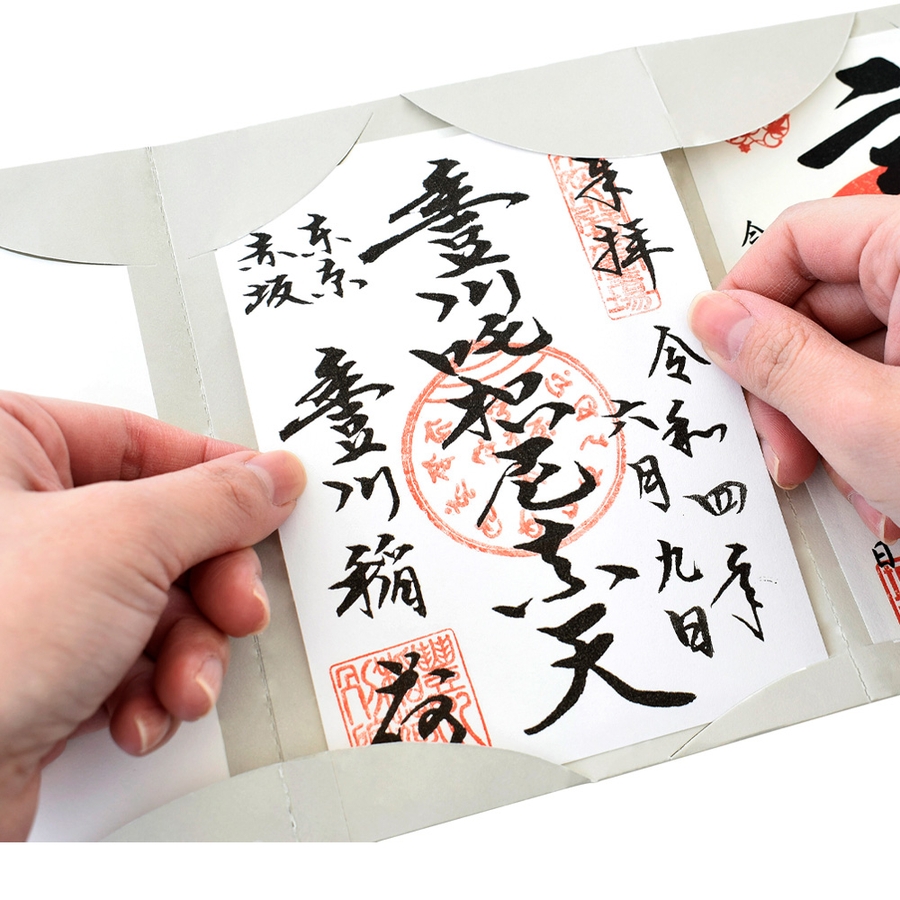 奉拝
令和四年
六月九日
豊川吒枳尼真天
東京
赤坂
豊川稲荷
令
日